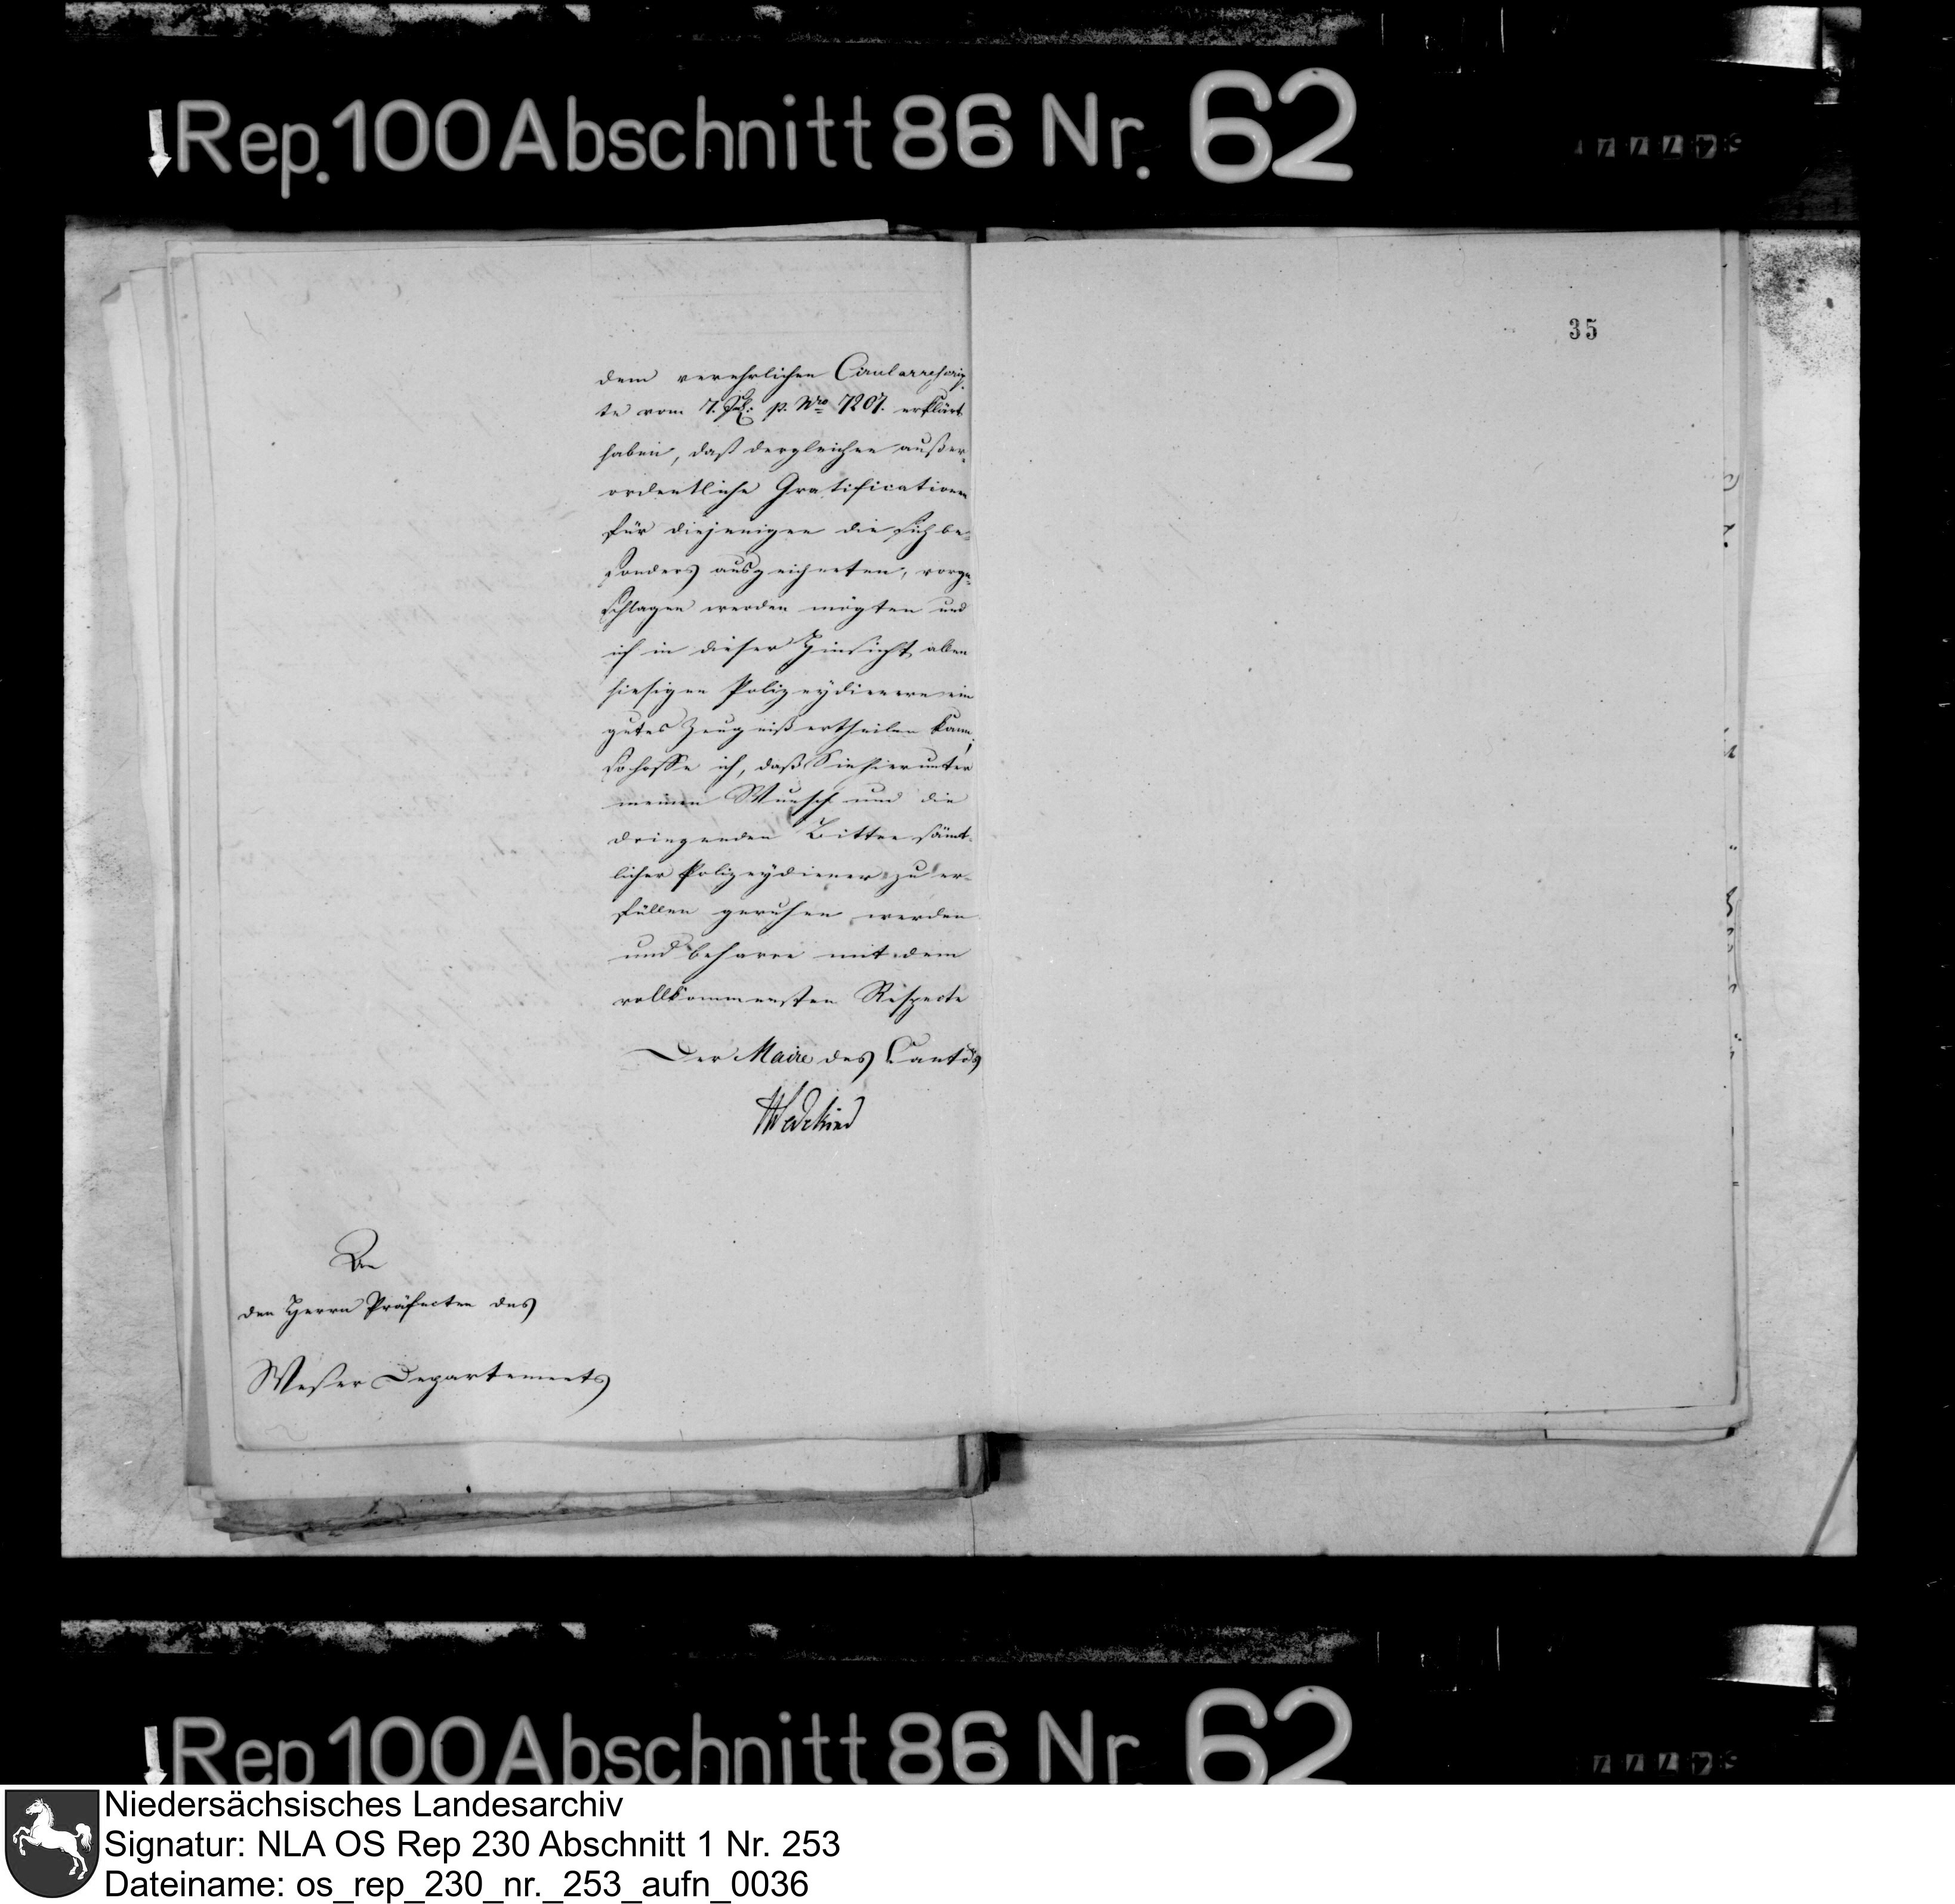 Rep. 100 Abschnitt 86 Nr. 62
35
dem verehrlichen Circularrescrip-
te vom 7. Jul: p. Nro 7207. erklärt
haben, daß dergleichen außer-
ordentliche Gratificationen
für diejenigen die sich be-
sonders auszeichneten, vorge-
schlagen werden mögten und
ich in dieser Hinsicht allen
hiesigen Polizeydienern ein
gutes Zeugniß ertheilen kann;
so hoffe ich, daß Sie hierunter
meinen Wunsch und die
dringenden Bitten sämt-
licher Polizeydiener zu er-
füllen geruhen werden
und beharre mit dem
vollkommensten Respecte
Der Maire des Cantons
Wedekind
An
den Herrn Präfecten des
Weser Departements
Rep 100 Abschnitt 86 Nr 62
Niedersächsisches Landesarchiv
Signatur: NLA OS Rep 230 Abschnitt 1 Nr. 253
Dateiname: os_rep_230_nr._253_aufn_0036